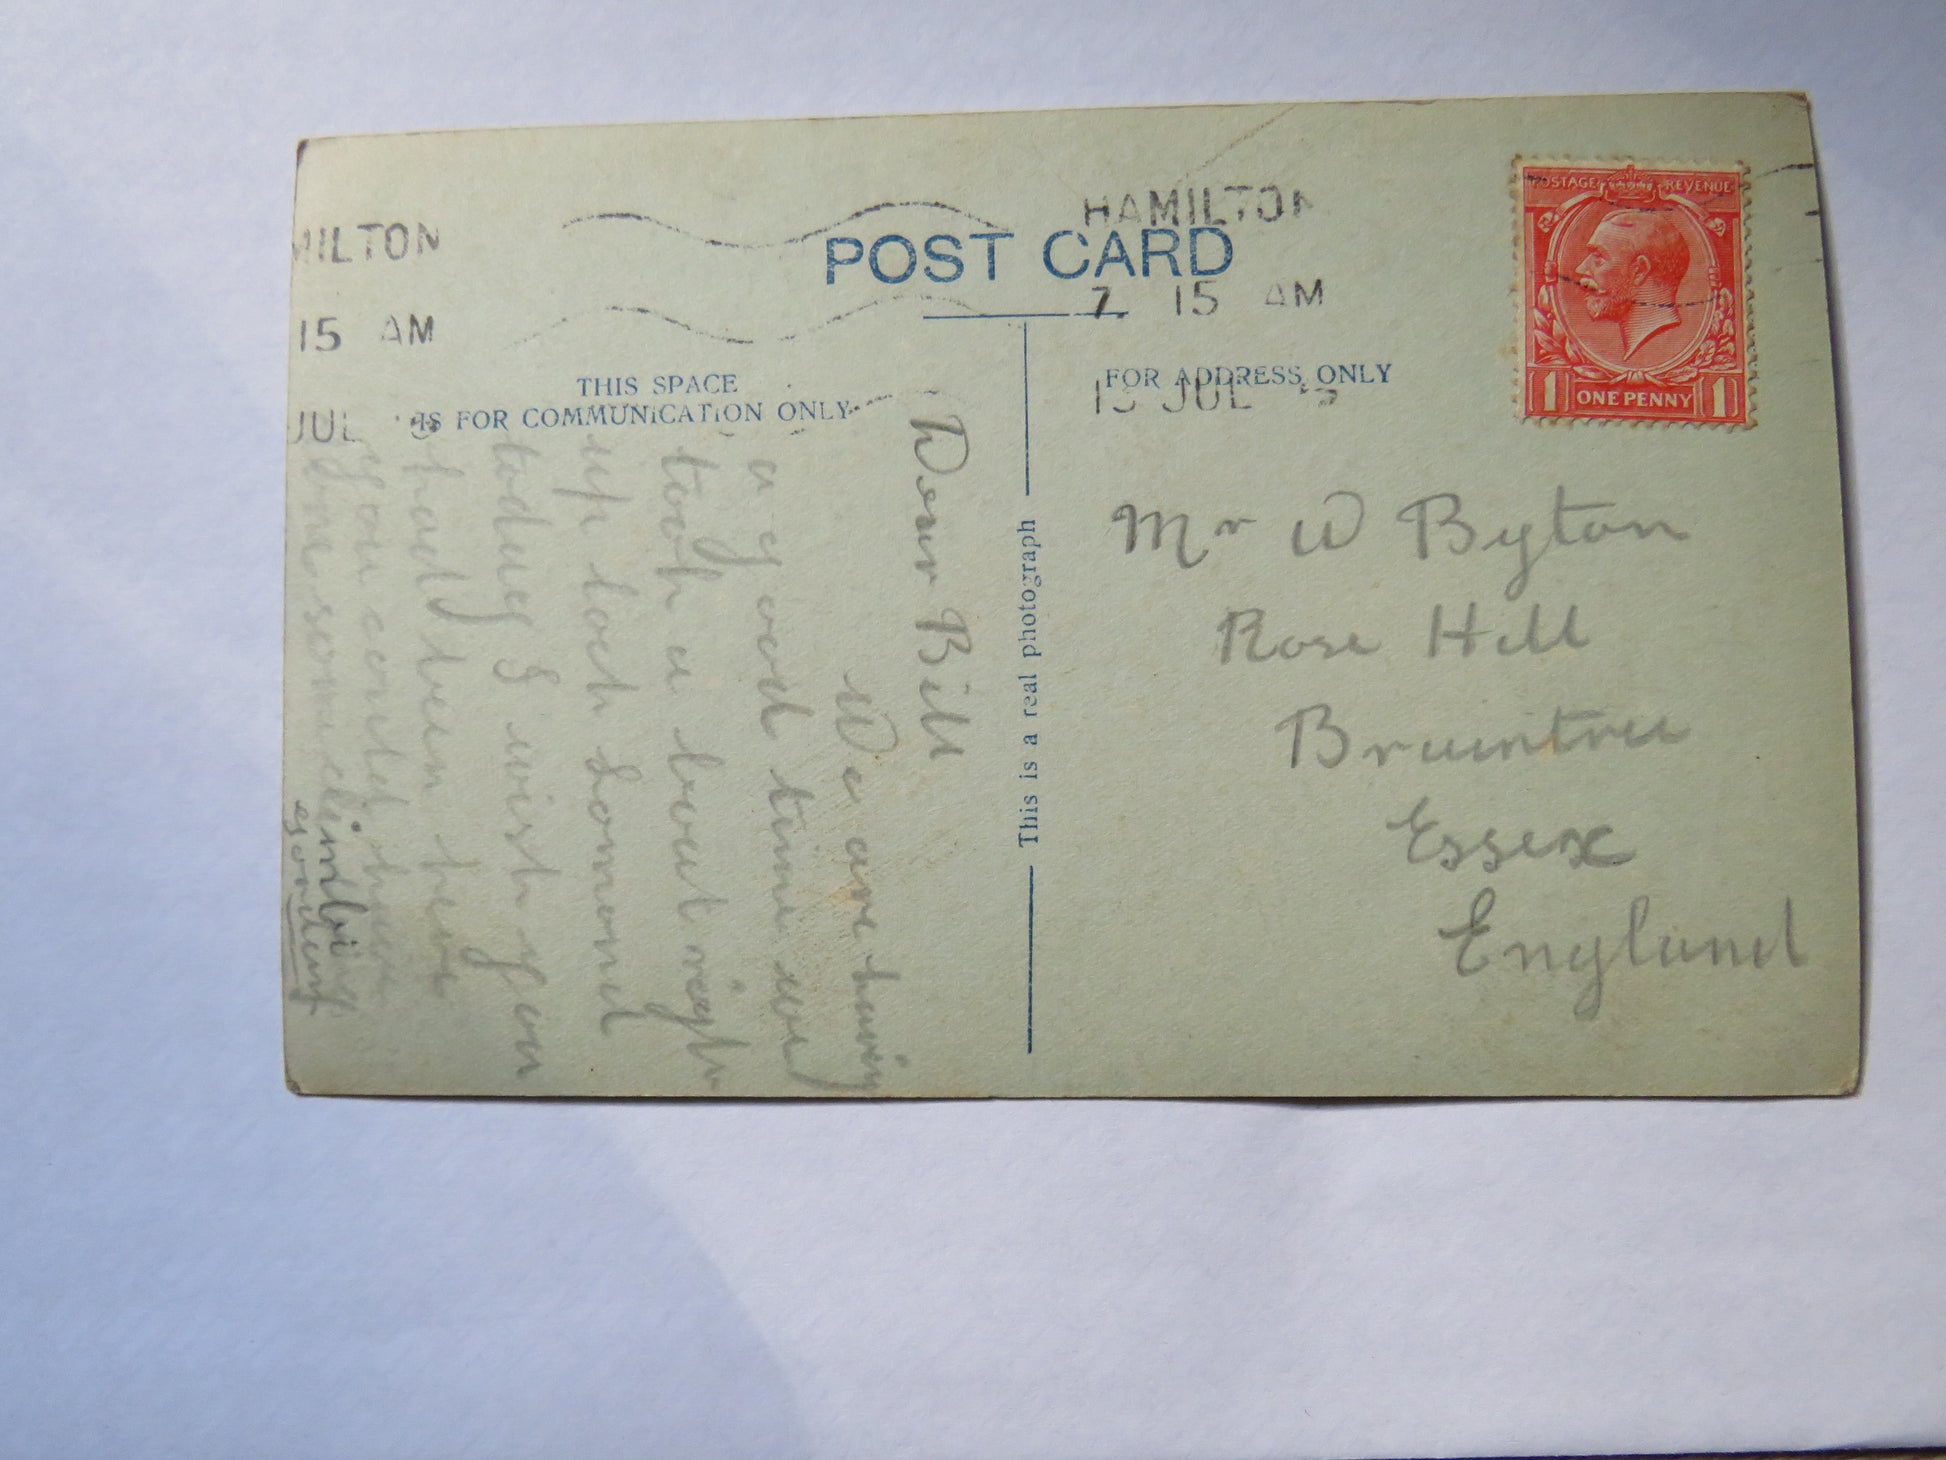 MILTON
15 AM
JUL
HAMILTON
7. 15 AM
JUL
POST CARD
THIS SPACE
IS FOR COMMUNICATION ONLY
FOR ADDRESS ONLY
POSTAGE REVENUE
1 ONE PENNY 1
This is a real photograph
Dear Bill
We are having
a good time we
took a bout right
up loch Lomond
today I wish you
had been here
you could have
done some climbing
Mr W Byton
Rose Hill
Braintree
Essex
England